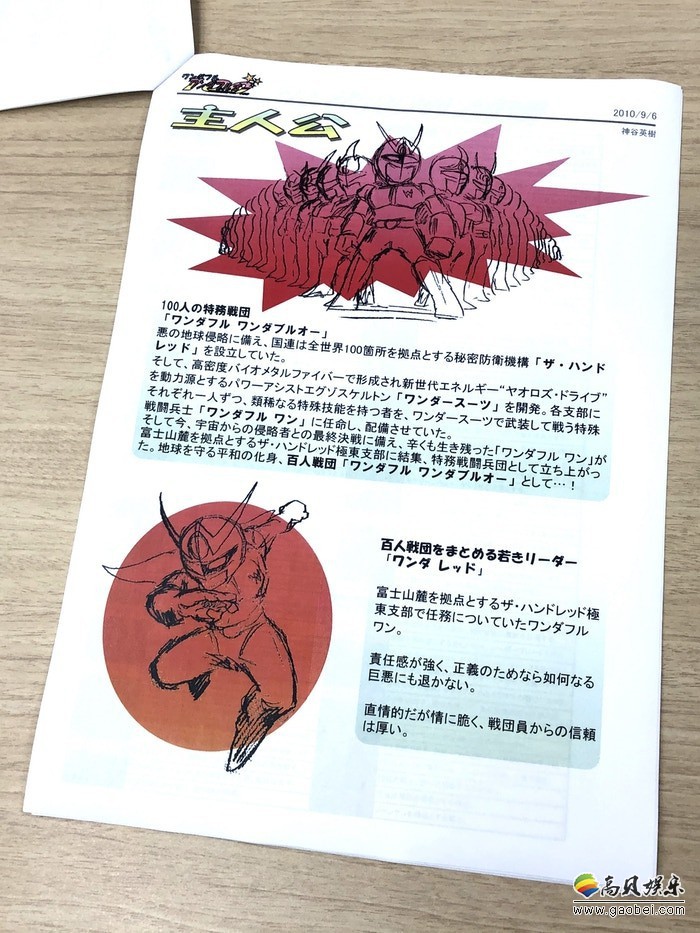 ワンダフル
2010/9/6
神谷英樹
主人公
100人の特務戦団
「ワンダフル ワンダブルオー」
悪の地球侵略に備え、国連は全世界100箇所を拠点とする秘密防衛機構「ザ・ハンド
レッド」を設立していた。
そして、高密度バイオメタルファイバーで形成され新世代エネルギー“ヤオロズ・ドライブ”
を動力源とするパワーアシストエグゾスケルトン「ワンダースーツ」を開発。各支部に
それぞれ一人ずつ、類稀なる特殊技能を持つ者を、ワンダースーツで武装して戦う特殊
戦闘兵士「ワンダフル ワン」に任命し、配備させていた。
そして今、宇宙からの侵略者との最終決戦に備え、辛くも生き残った「ワンダフル ワン」が
富士山麓を拠点とするザ・ハンドレッド極東支部に結集、特務戦闘兵団として立ち上がっ
た。地球を守る平和の化身、百人戦団「ワンダフル ワンダブルオー」として…！
百人戦団をまとめる若きリーダー
「ワンダ レッド」
富士山麓を拠点とするザ・ハンドレッド極
東支部で任務についていたワンダフル
ワン。
責任感が強く、正義のためなら如何なる
巨悪にも退かない。
直情的だが情に脆く、戦団員からの信頼
は厚い。
高贝娱乐
www.gaobei.com